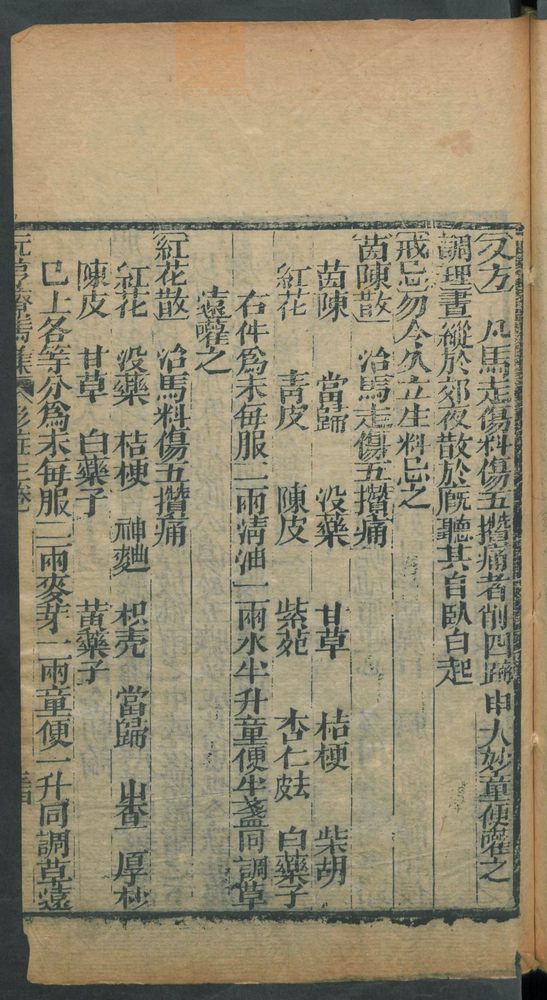 又方　凡馬走傷料傷五攢痛者削四蹄 大妙童便嚾之
調理晝縱於郊夜散於厩聽其自臥自起
戒忌勿令久立生料忌之
茵陳散　治馬走傷五攢痛
茵陳　當歸　没藥　甘草　桔梗　柴胡
紅花　青皮　陳皮　紫菀　杏仁 白藥子
右件爲末每服二兩清油一兩水半升童便半盞同調草
遠嚾之
紅花散　治馬料傷五攢痛
紅花　没藥　桔梗　神麯　枳壳　當歸　山查　厚朴
陳皮　甘草　白藥子　黃藥子
已上各等分爲末每服二兩麥芽二兩童便一升同調草遠
元亨療馬集